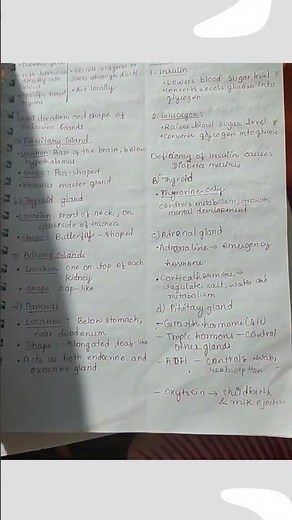 directly into
blood
Specific target
organs
• Act locally
location and shape of
Endocrine Glands
a) Pituitary Gland
Location: Base of the brain, below
hypothalamus
• Shape: Pea-shaped
• Known as master gland
b) Thyroid gland
• Location: Front of neck, on
either side of trachea
• Shape: Butterfly-shaped
c) Adrenal Glands
• Location: one on top of each
kidney
• Shape: Cap-like
d) Pancreas
• Location: Below stomach,
near duodenum
• Shape: Elongated leaf-like
• Acts as both endocrine and
exocrine gland
1. Insulin
• Lowers blood sugar level
• Converts excess glucose into
glycogen
2. Glucagon:
• Raises blood sugar level
• Converts glycogen into glucose
Deficiency of insulin causes
Diabetes
B) Thyroid
• Thyroxine
controls metabolism, growth,
mental development
c) Adrenal gland
• Adrenaline → emergency
hormone
• Cortical hormone -
regulate salt, water and
metabolism
d) Pituitary gland
- Growth hormone (GH)
- Tropic hormones - Control
other glands
- ADH - Controls water
reabsorption
- Oxytocin → childbirth
& milk ejection